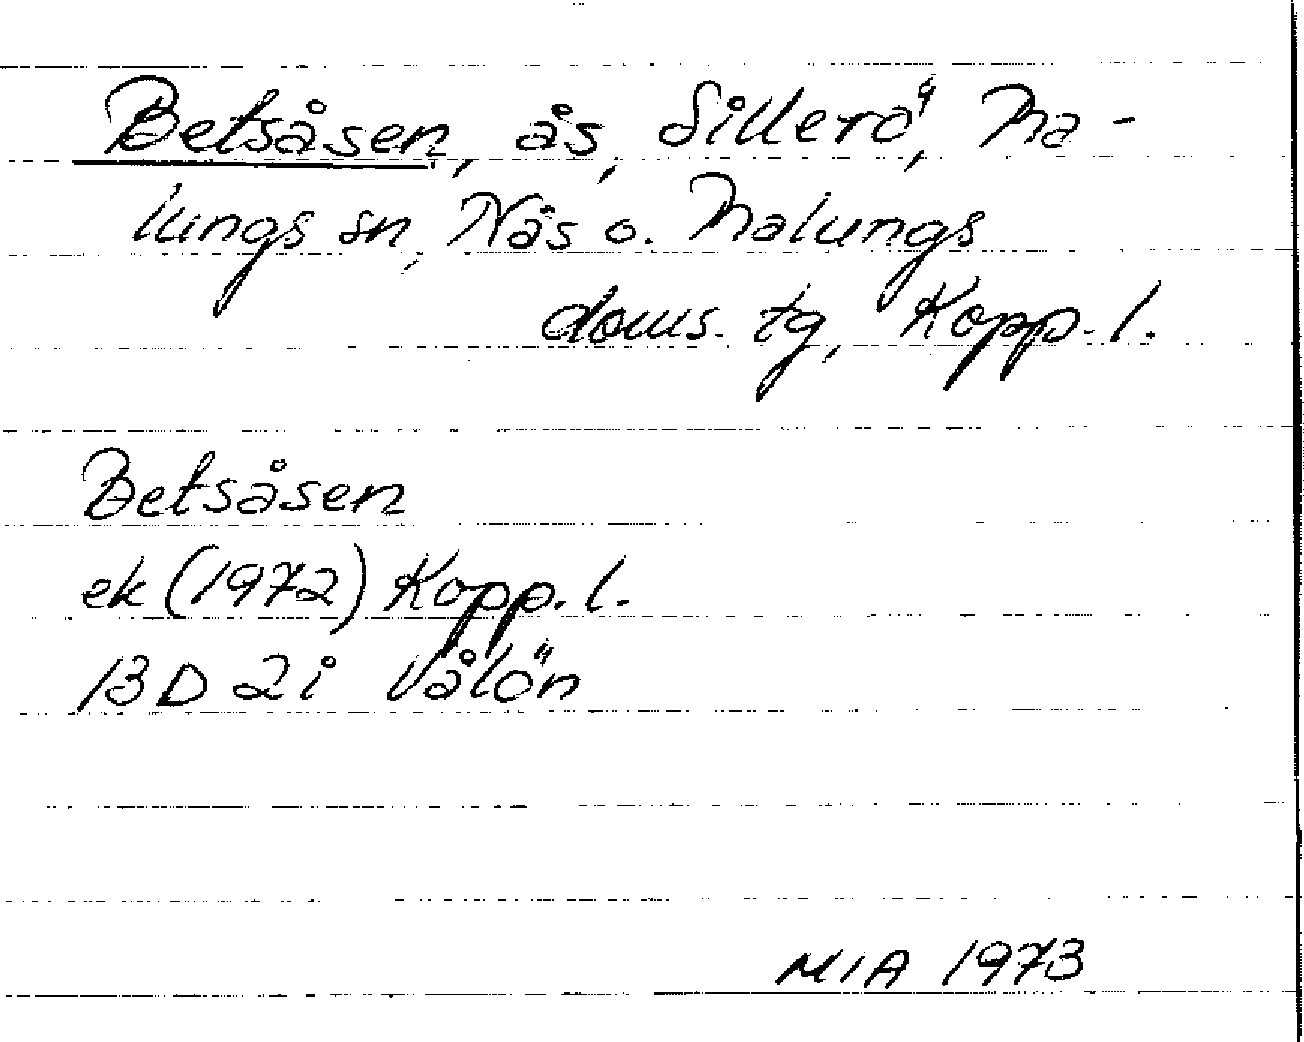 Betsåsen, ås, Sillerö, Ma-
lungs sn, Nås o. Malungs
doms. tg, Kopp. l.
Betsåsen
ek (1972) Kopp. l.
13 D 2 i Vålön
MIA 1973